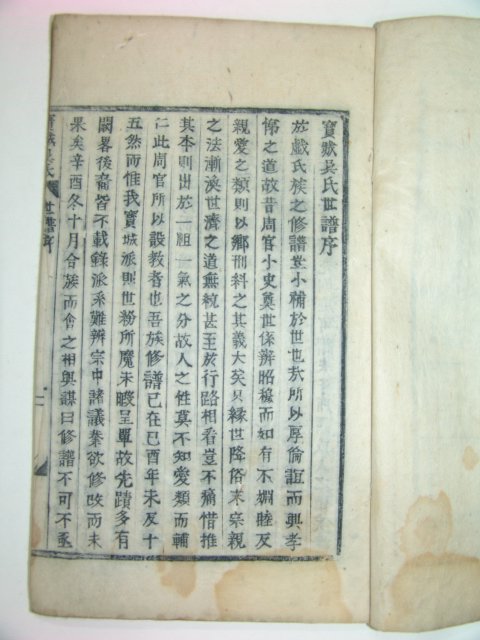 寶城吳氏世譜序
於戱氏族之修譜豈小補於世也哉所以厚倫誼而興孝
悌之道故昔周官小史奠世係辨昭穆而如有不婣睦及
親愛之類則以鄕刑糾之其義大矣縁世降俗末宗親
之法漸渙世濟之道無統甚至於行路相看豈不痛惜推
其李則出於一祖一氣之分故人之性莫不知愛類而輔
仁此周官所以設教者也吾族修譜已在己酉年未及十
五然而惟我寶城派則世紛所魔未暇呈單故先蹟多有
闕畧後裔皆不載錄派系難辨宗中諸議葉欲修改而未
果矣辛酉冬十月合族而會之相與謀曰修譜不可不亟
寶城吳氏 世譜序